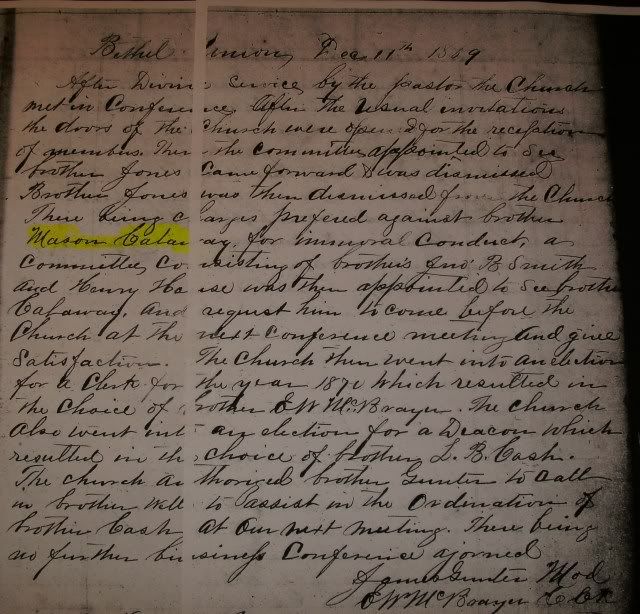 Bethel Union, Dec 11th 1869
After Divine service by the pastor the Church
met in Conference, After the usual invitations
the doors of the Church were opened for the reception
of members. Then the committee appointed to see
brother Jones Came forward & was dismissed
Brother Jones was then dismissed from the Church
There being charges prefered against brother
Mason Calaway, for immoral Conduct, a
Committee, consisting of brothers Jno B Smith
and Henry House was then appointed to see brother
Calaway, And request him to come before the
Church at the next Conference meeting and give
Satisfaction. The Church then went into an election
for a Clerk for the year 1870 which resulted in
the choice of brother E W McBrayer. The church
also went into an election for a Deacon which
resulted in the choice of brother L. B. Cash.
The church authorized brother Gunter to call
in brother Well to assist in the Ordination of
brother Cash At Our next meeting. There being
no further business Conference ajorned
James Gunter Mod
E W McBrayer C Clk